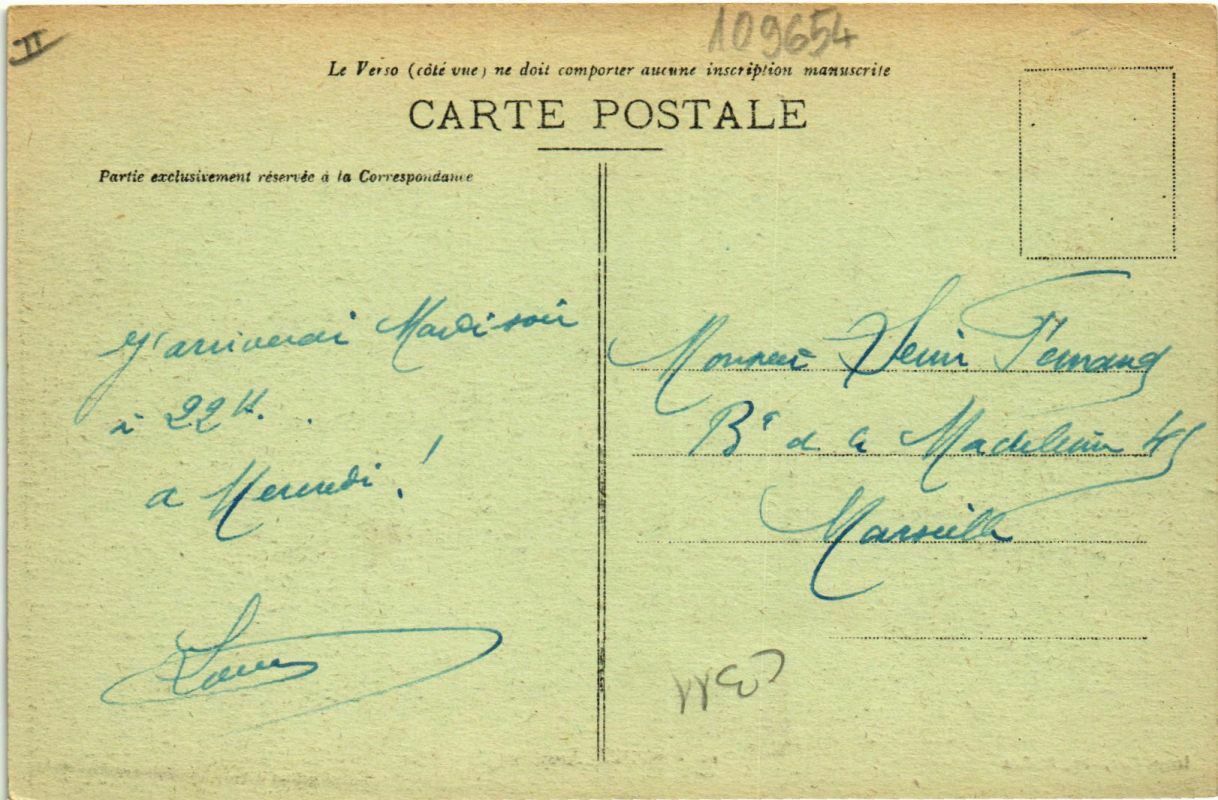 II
109654
Le Verso (côté vue) ne doit comporter aucune inscription manuscrite
CARTE POSTALE
Partie exclusivement réservée à la Correspondance
J'arriverai Mardi soir
à 22 H.
a Mercredi !
Louis
Monsieur Fernand
Bd de la Madeleine
Marseille